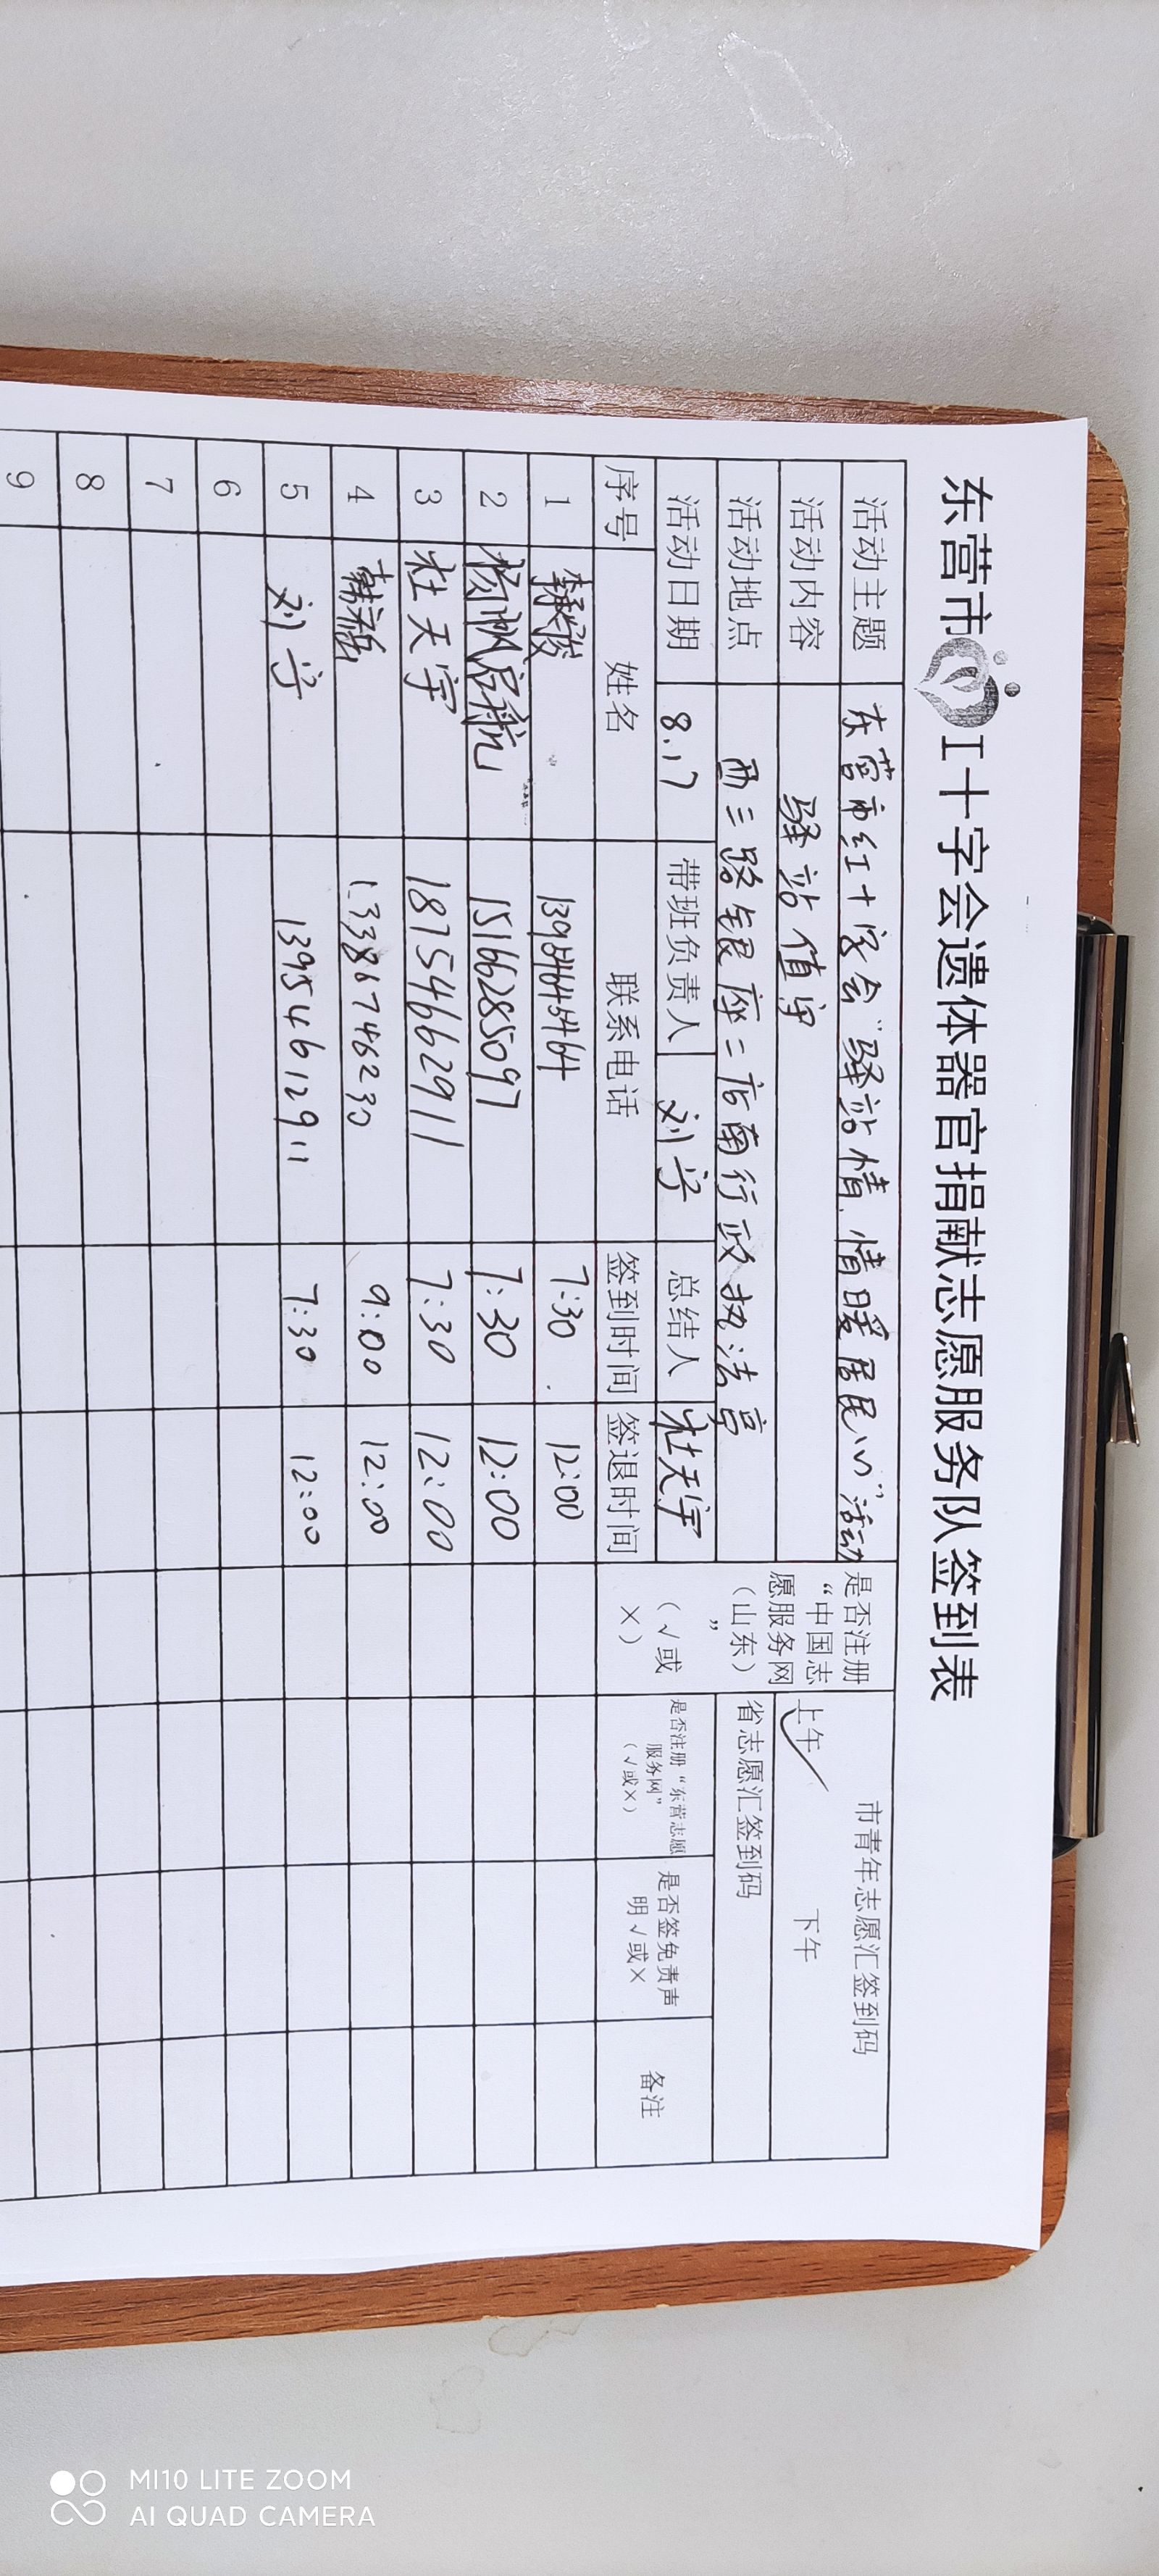 东营市 工十字会遗体器官捐献志愿服务队签到表
活动主题 东营市红十字会“驿站情.情暖居民心”活动 是否注册“中国志愿服务网（山东）”（√或×） 市青年志愿汇签到码
活动内容 驿站值守 上午 下午
活动地点 西三路银座二店南行政执法亭 省志愿汇签到码
活动日期 8.17 带班负责人 刘宁 总结人 杜天宇
序号 姓名 联系电话 签到时间 签退时间 是否注册“东营志愿服务网”（√或×） 是否签免责声明√或× 备注
1 7:30 12:00
2 杨帆启航 15166285097 7:30 12:00
3 杜天宇 18754662911 7:30 12:00
4 13386746230 9:00 12:00
5 刘宁 13954612911 7:30 12:00
6
7
8
9
MI10 LITE ZOOM
AI QUAD CAMERA